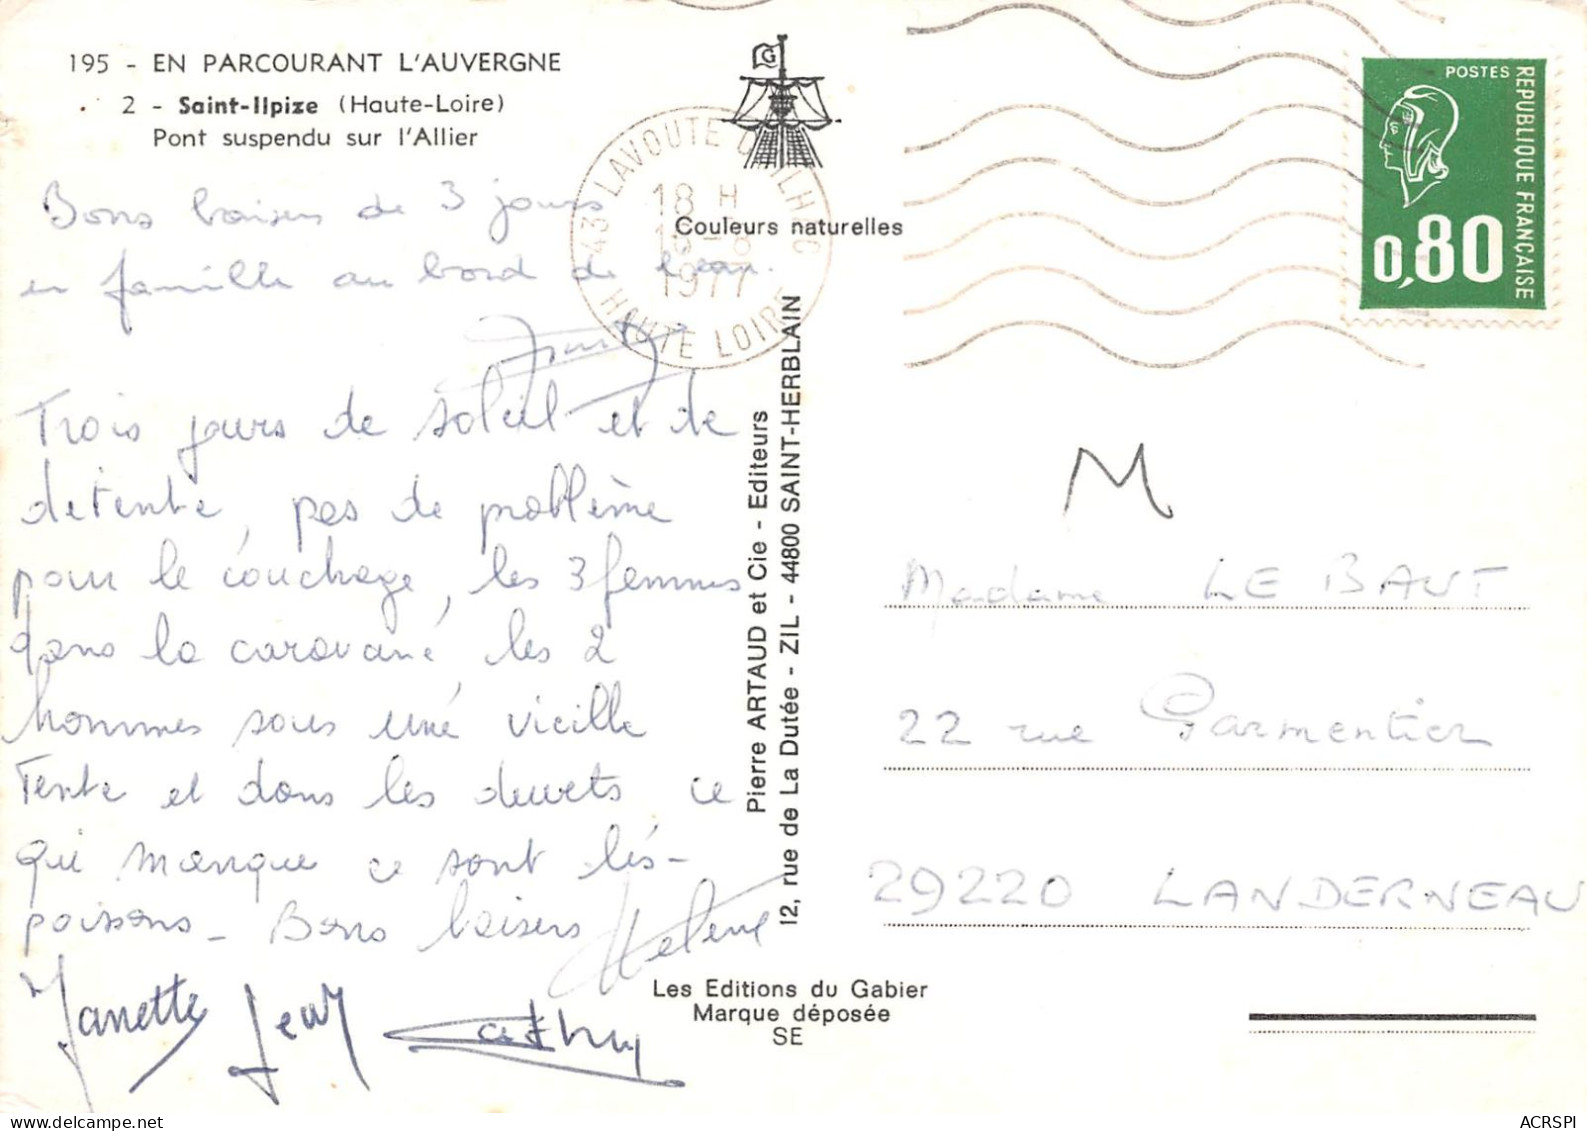 195 - EN PARCOURANT L'AUVERGNE
2 - Saint-Ilpize (Haute-Loire)
Pont suspendu sur l'Allier
Bons baisers de 3 jours
en famille au bord de l'eau.
Trois jours de soleil et de
détente, pas de problème
pour le couchage, les 3 femmes
dans la caravane, les 2
hommes sous une vieille
Tente et dans les duvets, ce
qui manque ce sont les
poissons - Bons baisers
Hélène
Janette Jean Cathy
43 LAVOUTE CHILHAC
18 H
1977
HAUTE LOIRE
G
Couleurs naturelles
Pierre ARTAUD et Cie - Editeurs
12, rue de La Dutée - ZIL - 44800 SAINT-HERBLAIN
Les Editions du Gabier
Marque déposée
SE
POSTES
REPUBLIQUE FRANÇAISE
0,80
M
Madame LE BAUT
22 rue Parmentier
29220 LANDERNEAU
ACRSPI